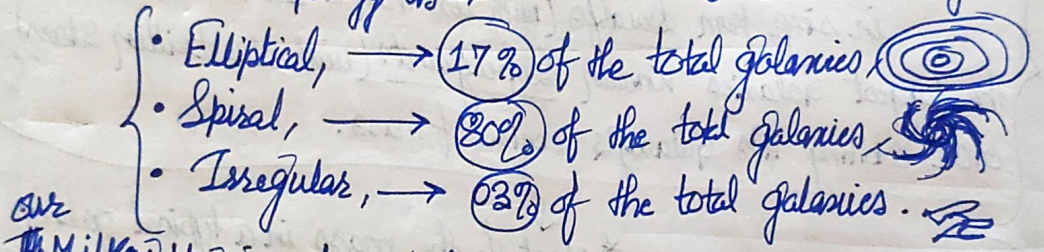 • Elliptical, → 17% of the total galaxies,
• Spiral, → 80% of the total galaxies,
• Irregular, → 03% of the total galaxies.
our